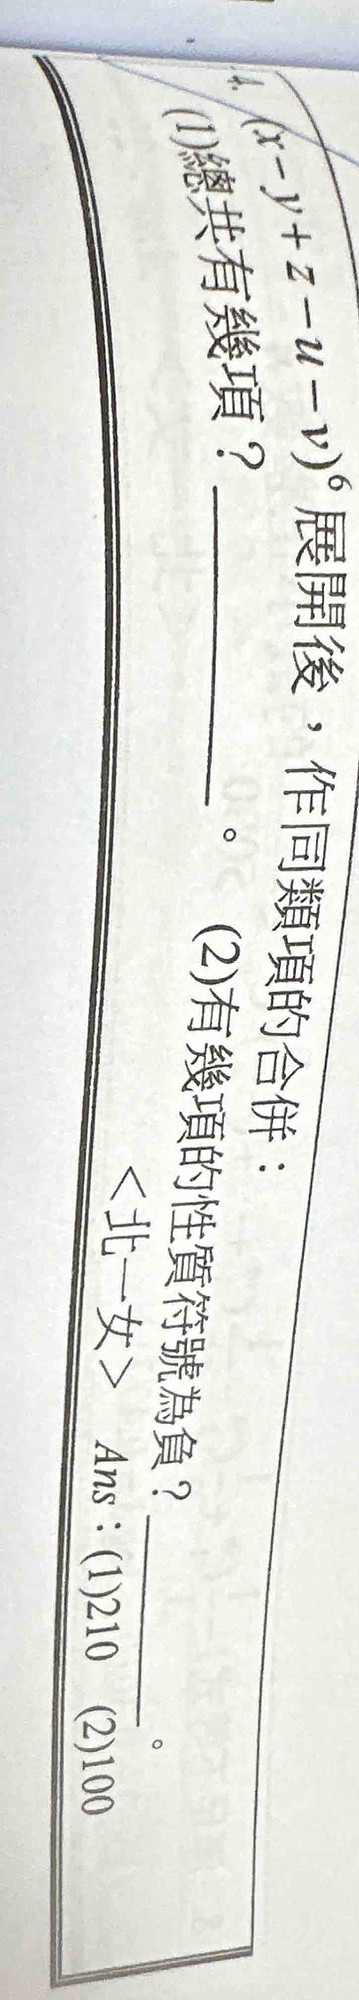 4. (x−y+z−u−v)⁶ 展開後，作同類項的合併：
(1)總共有幾項？________。 (2)有幾項的性質符號為負？________。
<北一女> Ans：(1)210 (2)100